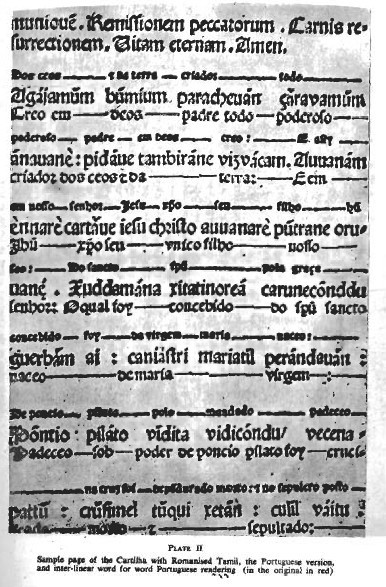 muniouē. Remissionem peccatorum. Carnis re-
surrectionem. Vitam eternam. Amen.
Dos ceos — e da terra — criador — todo
Agājamūm būmium parachevān çaravamūm
Creo em — deos — padre todo — poderoso
poderoso — padre — em deos — creo :
ānavanē : pidāve tambirāne vizvācam. Avvanām
criador dos ceos e da — terra: — E em
em nosso — senhor — Jesu — xpo — seu — filho
ēnnarē cartāve iesu christo avvanarē pūtrane oru-
Jhū — xpo seu — vnico filho — nosso
Do sancto — spū — pola graça
vanē. Xuddamāna xitatinoreā carunecōnddu
senhor: O qual foy — concebido — do spū sancto
concebido — foy — da virgem — maria — naceo:
querbam ai : caniāstri mariatil perāndavān:
naceo — de maria — virgem :
De poncio — pilato — polo — mandado — padeceo
Pōntio : pilato vīdita vidicōndu vecena-
Padeceo — sob — poder de poncio pilato foy — cruci-
na cruz foi — morto: e no sepulcro posto
pattū : crūsinel tūqui xetān : culil vāitu :
morto — e — sepultado:
PLATE II
Sample page of the Cartilha with Romanised Tamil, the Portuguese version,
and inter-linear word for word Portuguese rendering (in the original in red)